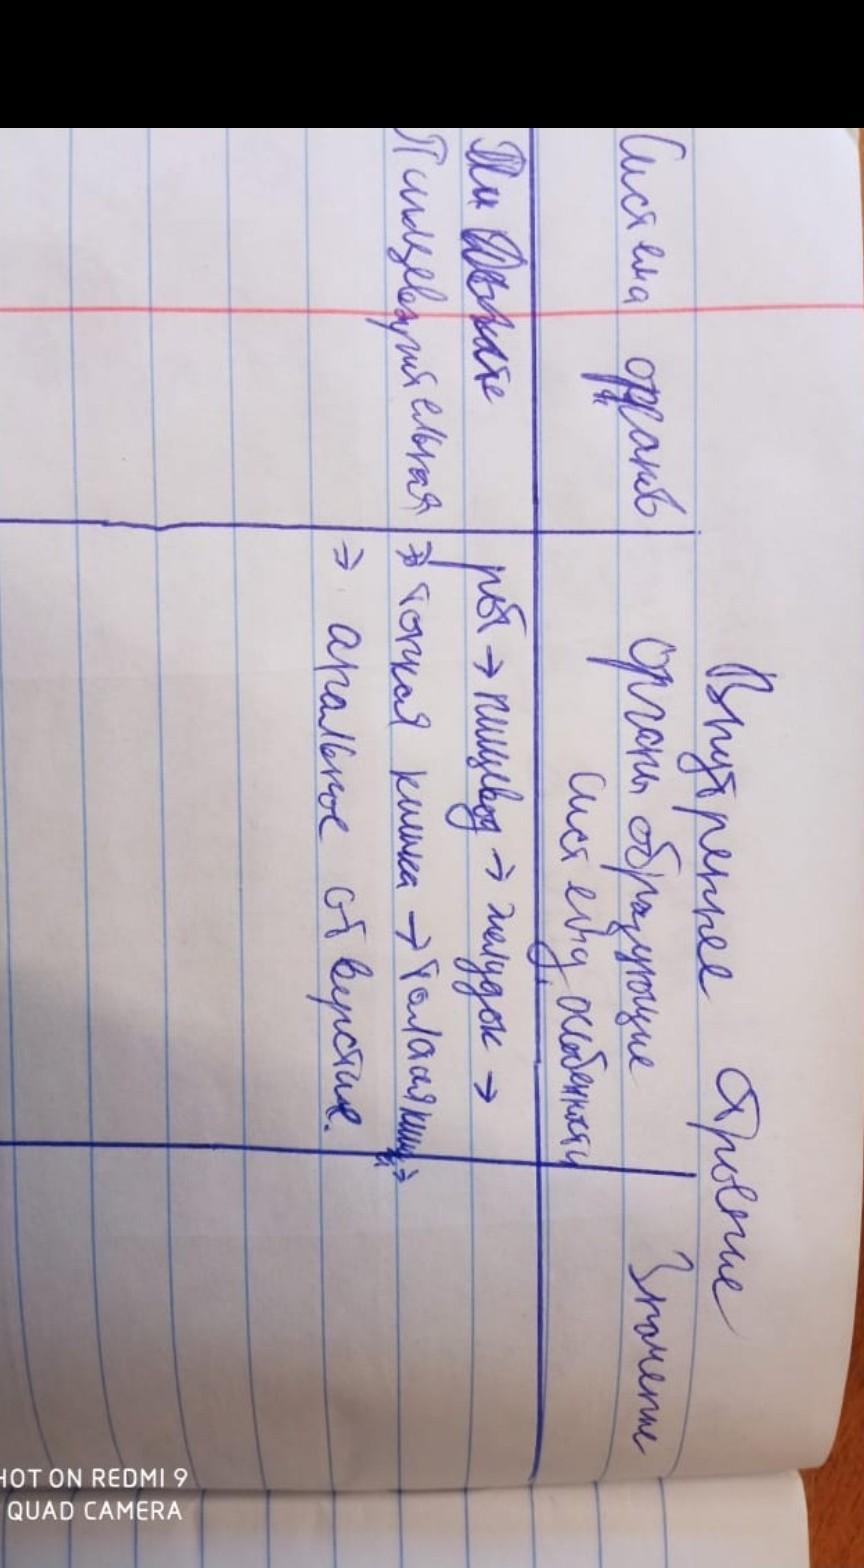 Внутреннее строение
Система органов
органы образующие
систему, особенности
Значение
рот → пищевод → желудок →
Пищеварительная
→ тонкая кишка → толстая киш →
→ анальное отверстие.
SHOT ON REDMI 9
QUAD CAMERA